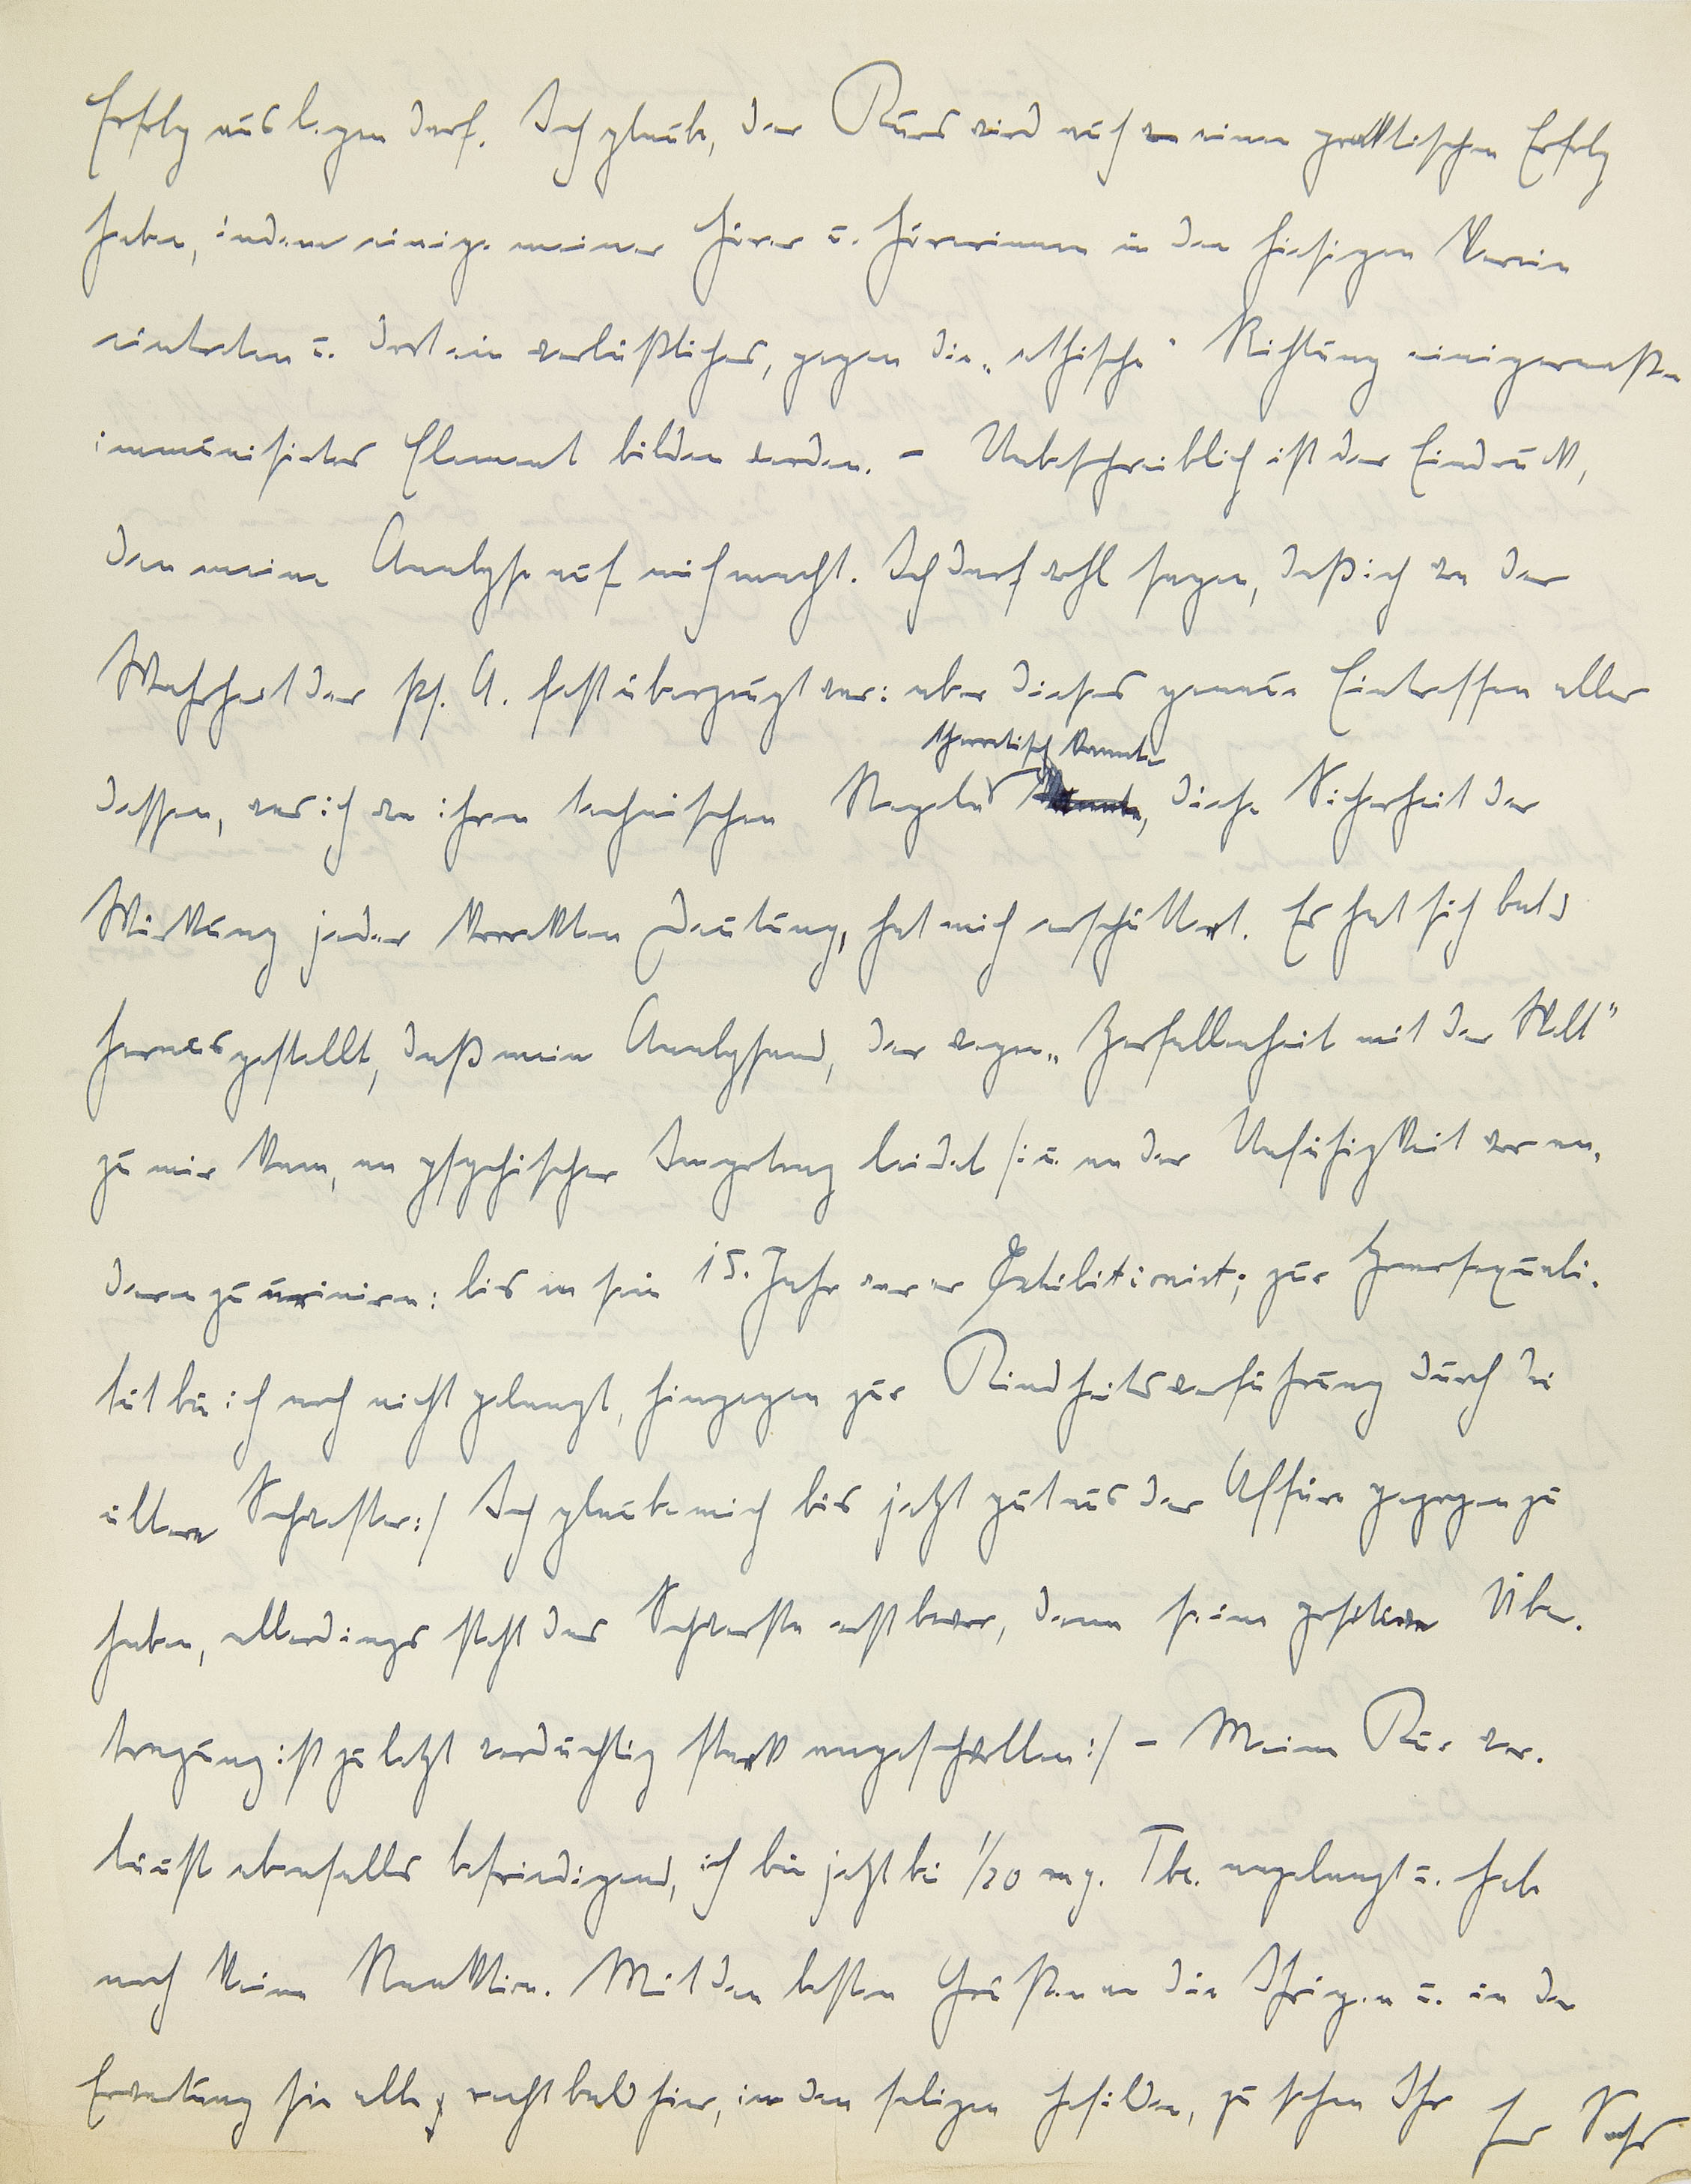 Erfolg auslegen darf. Ich glaube, der Kurs wird auch einen praktischen Erfolg
haben, indem einige meiner Hörer u. Hörerinnen in den hiesigen Verein
eintreten u. dort ein verläßliches, gegen die „ethische" Richtung einigermaßen
immunisiertes Element bilden werden. – Unbeschreiblich ist der Eindruck,
den meine Analyse auf mich macht. Ich darf wohl sagen, daß ich von der
Wahrheit der Ps. A. fest überzeugt war: aber dieses genaue Eintreffen alles
theoretisch kannte
dessen, was ich von ihren technischen Regeln, diese Sicherheit der
Wirkung jeder korrekten Deutung, hat mich erschüttert. Es hat sich bald
herausgestellt, daß mein Analysand, der wegen „Zerfallenheit mit der Welt"
zu mir kam, an psychischer Impotenz leidet /: u. an der Unfähigkeit vor an-
dern zu urinieren: bis in sein 15. Jahr war er Exhibitionist; zur Homosexuali-
tät bin ich noch nicht gelangt, hingegen zur Kindheitsverführung durch die
ältere Schwester :/ Ich glaube mich bis jetzt gut aus der Affäre gezogen zu
haben, allerdings steht das Schwerste erst bevor, denn seine Über-
tragung ist zuletzt verdächtig stark angeschwollen :/ – Meine Kur ver-
läuft ebenfalls befriedigend, ich bin jetzt bei 1/20 mg. Tbc. angelangt u. habe
noch keine Reaktion. Mit den besten Grüßen an die Ihrigen u. in der
Erwartung sie alle recht bald hier, in den seligen Gefilden, zu sehen Ihr Hans Sachs